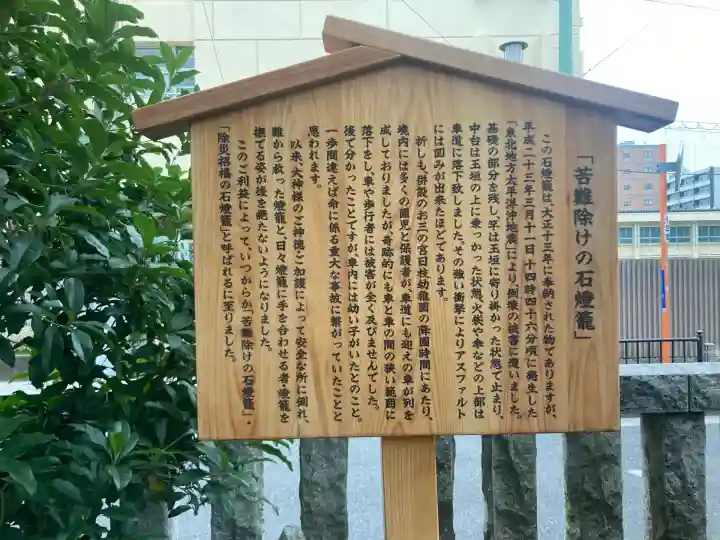 「苦難除けの石燈籠」
この石燈籠は、大正十三年に奉納された物でありますが、
平成二十三年三月十一日十四時四十六分頃に発生した
「東北地方太平洋沖地震」により倒壊の被害に遭いました。
基礎の部分を残し、竿は玉垣に寄り掛かった状態で止まり、
中台は玉垣の上に乗っかった状態、火袋や傘などの上部は
車道に落下致しました。その強い衝撃によりアスファルト
には凹みが出来たほどであります。
折しも、併設のお三の宮日枝幼稚園の降園時間にあたり、
境内には多くの園児と保護者が、車道にも迎えの車が列を
成しておりましたが、奇跡的にも車と車の間の狭い範囲に
落下をし、車や歩行者には被害が全く及びませんでした。
後で分かったことですが、車内には幼い子がいたとのこと。
一歩間違えば命に係る重大な事故に繋がっていたことと
思われます。
以来、大神様のご神徳・ご加護によって安全な所に倒れ、
難から救った燈籠と、日々燈籠に手を合わせる者、燈籠を
撫でる姿が後を絶たないようになりました。
このご利益によって、いつからか「苦難除けの石燈籠」・
「除災招福の石燈籠」と呼ばれるに至りました。